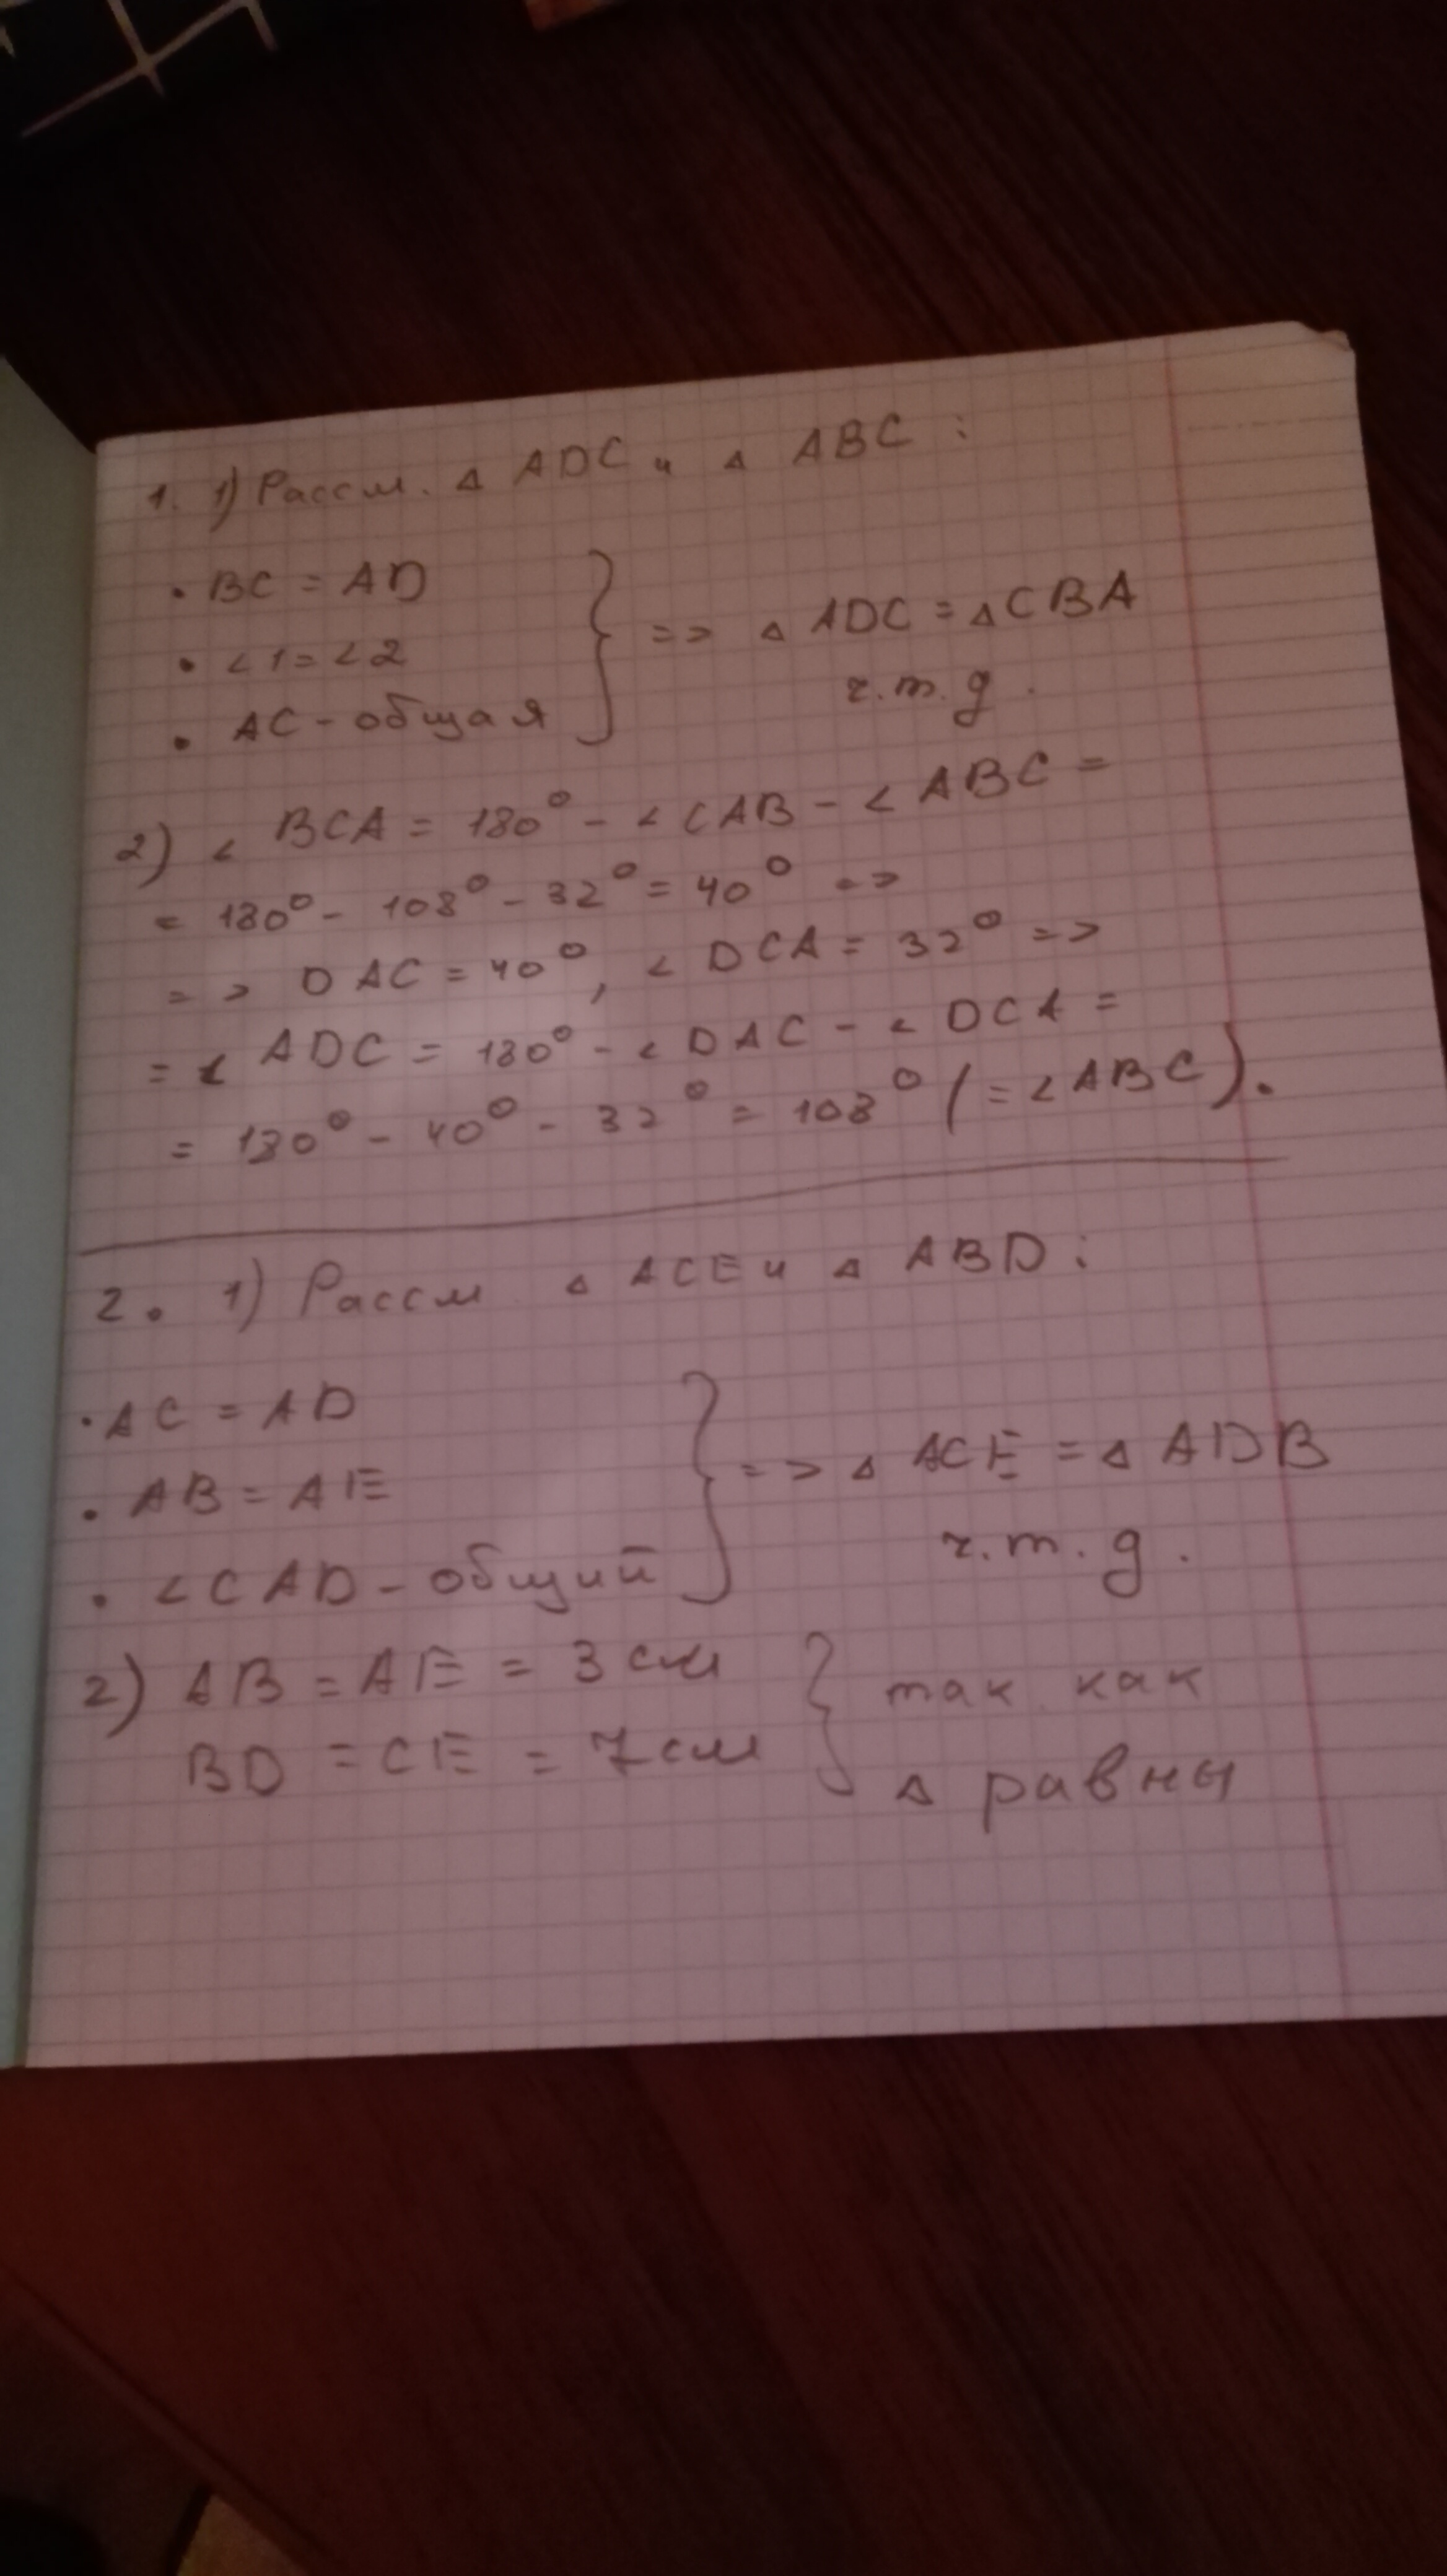 1. 1) Рассм. △ ADC и △ ABC :
• BC = AD
• ∠1=∠2
• AC - общая
=> △ ADC = △ CBA
ч.т.д.
2) ∠ BCA = 180° - ∠ CAB - ∠ ABC =
= 180° - 108° - 32° = 40° =>
=> DAC = 40°, ∠ DCA = 32° =>
= ∠ ADC = 180° - ∠ DAC - ∠ DCA =
= 180° - 40° - 32° = 108° (= ∠ ABC).
2. 1) Рассм △ ACE и △ ABD :
• AC = AD
• AB = AE
• ∠CAD - общий
=> △ ACE = △ ADB
ч.т.д.
2) AB = AE = 3 см
BD = CE = 7 см
так как
△ равны